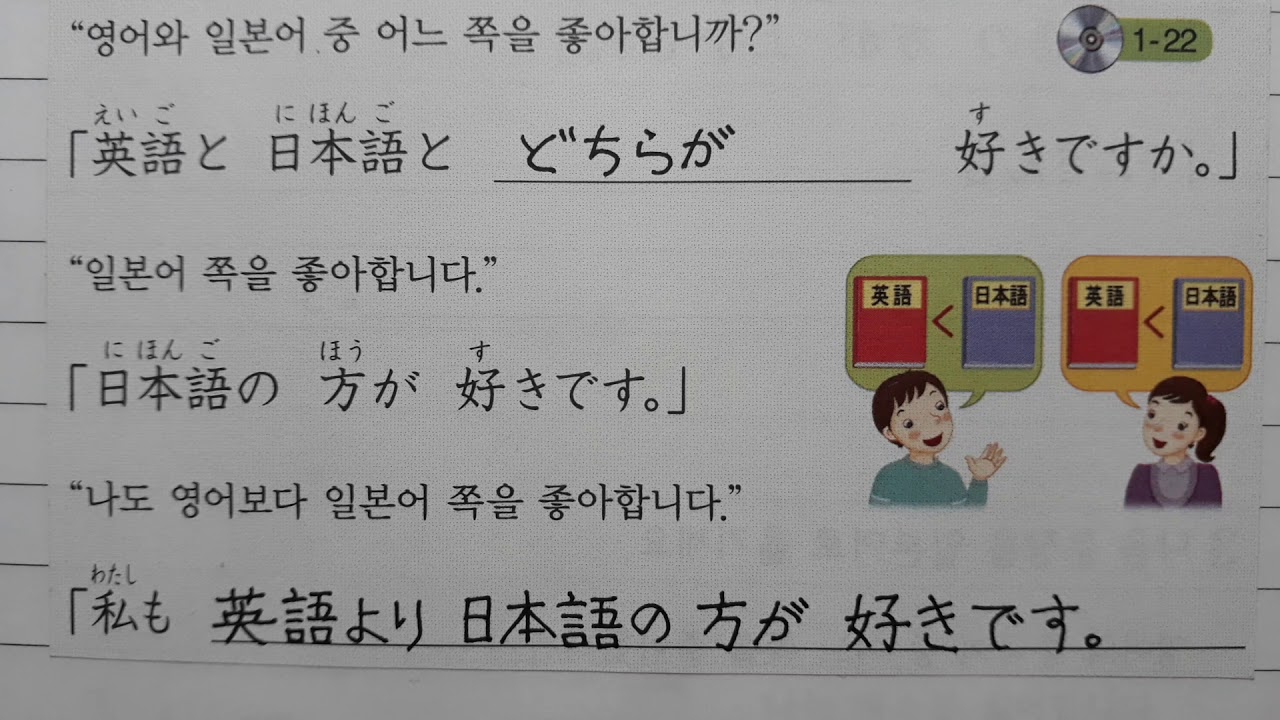 “영어와 일본어 중 어느 쪽을 좋아합니까?”
1-22
えい ご に ほん ご す
「英語と 日本語と どちらが 好きですか。」
“일본어 쪽을 좋아합니다.”
英語 < 日本語 英語 < 日本語
に ほん ご ほう す
「日本語の 方が 好きです。」
“나도 영어보다 일본어 쪽을 좋아합니다.”
わたし
「私も 英語より 日本語の 方が 好きです。